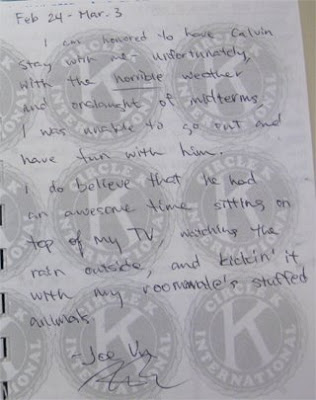 Feb 24 - Mar. 3
I am honored to have Calvin
stay with me - unfortunately,
with the horrible weather
and onslaught of midterms,
I was unable to go out and
have fun with him.
I do believe that he had
an awesome time sitting on
top of my TV, watching the
rain outside, and kickin' it
with my roommate's stuffed
animals.
- Joe
CIRCLE K INTERNATIONAL
CIRCLE K INTERNATIONAL
CIRCLE K INTERNATIONAL
CIRCLE K INTERNATIONAL